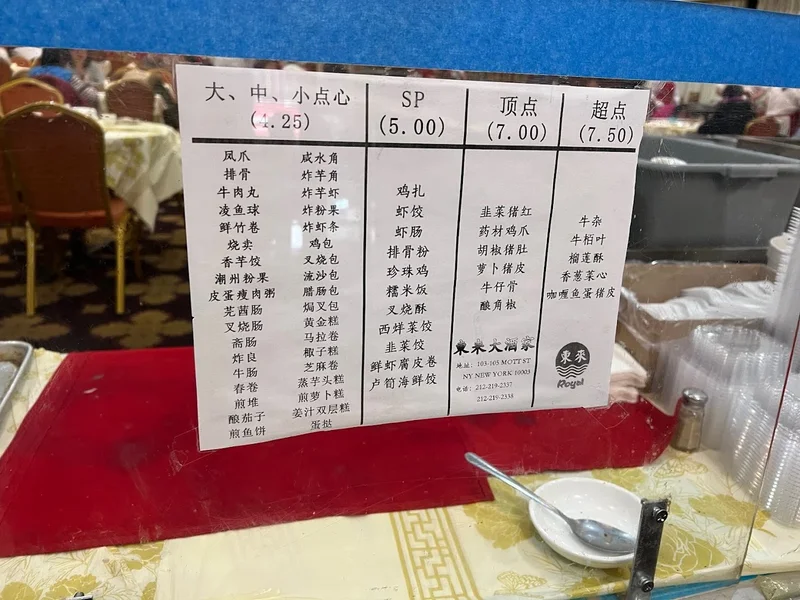 大、中、小点心
(4.25)
凤爪
排骨
牛肉丸
凌鱼球
鲜竹卷
烧卖
香芋饺
潮州粉果
皮蛋瘦肉粥
芫茜肠
叉烧肠
斋肠
炸良
牛肠
春卷
煎堆
酿茄子
煎鱼饼
咸水角
炸芋角
炸芋虾
炸粉果
炸虾条
鸡包
叉烧包
流沙包
腊肠包
焗叉包
黄金糕
马拉卷
椰子糕
芝麻卷
蒸芋头糕
煎萝卜糕
姜汁双层糕
蛋挞
SP
(5.00)
鸡扎
虾饺
虾肠
排骨粉
珍珠鸡
糯米饭
叉烧酥
西洋菜饺
韭菜饺
鲜虾腐皮卷
卢筍海鲜饺
顶点
(7.00)
韭菜猪红
药材鸡爪
胡椒猪肚
萝卜猪皮
牛仔骨
酿角椒
東来大酒家
地址: 103-105 MOTT ST
NY NEW YORK 10003
电话: 212-219-2337
212-219-2338
超点
(7.50)
牛杂
牛栢叶
榴莲酥
香葱菜心
咖喱鱼蛋猪皮
東來
Royal